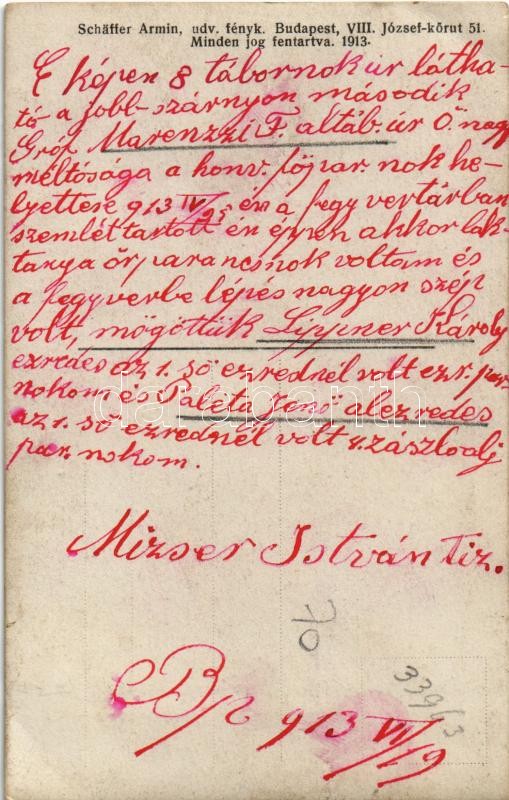 Schäffer Armin, udv. fényk. Budapest, VIII. József-körut 51.
Minden jog fentartva. 1913.
E képen 8 tábornok úr látha-
tó a jobb szárnyon második
Gróf Marenzzi F. altáb. úr Ő nagy
méltósága a honv. főpar. nok he-
lyettese 913 IV/25 én a fegyvertárban
szemlét tartott én éppen akkor lak-
tanya őrparancsnok voltam és
a fegyverbe lépés nagyon szép
volt, mögöttük Lippner Károly
ezredes az 1. ső ezrednél volt ezr. par.
nokom és Paleta Jenő alezredes
az 1. ső ezrednél volt zászlóalj
par. nokom.
Mizser István Tiz.
Bp 913 VI/19
70
339/43
darabanth